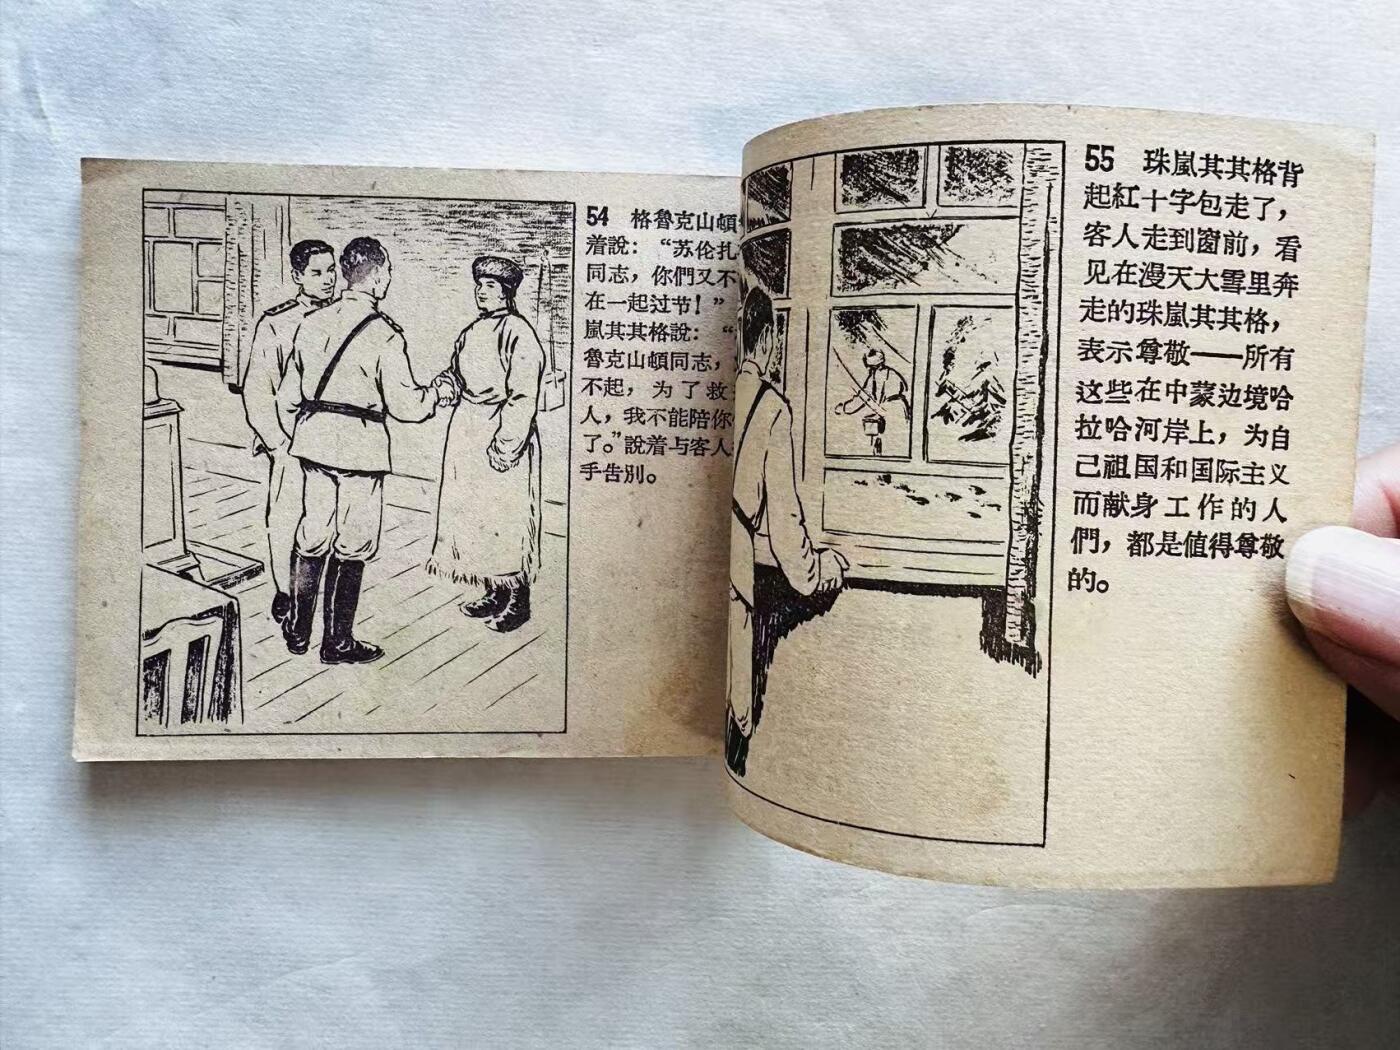 54 格魯克山頓
着說：“苏伦扎
同志，你們又不
在一起过节！”
嵐其其格說：“
魯克山頓同志，
不起，为了救
人，我不能陪你
了。”說着与客人
手告別。
55 珠嵐其其格背
起紅十字包走了，
客人走到窗前，看
见在漫天大雪里奔
走的珠嵐其其格，
表示尊敬——所有
这些在中蒙边境哈
拉哈河岸上，为自
己祖国和国际主义
而献身工作的人
們，都是值得尊敬
的。